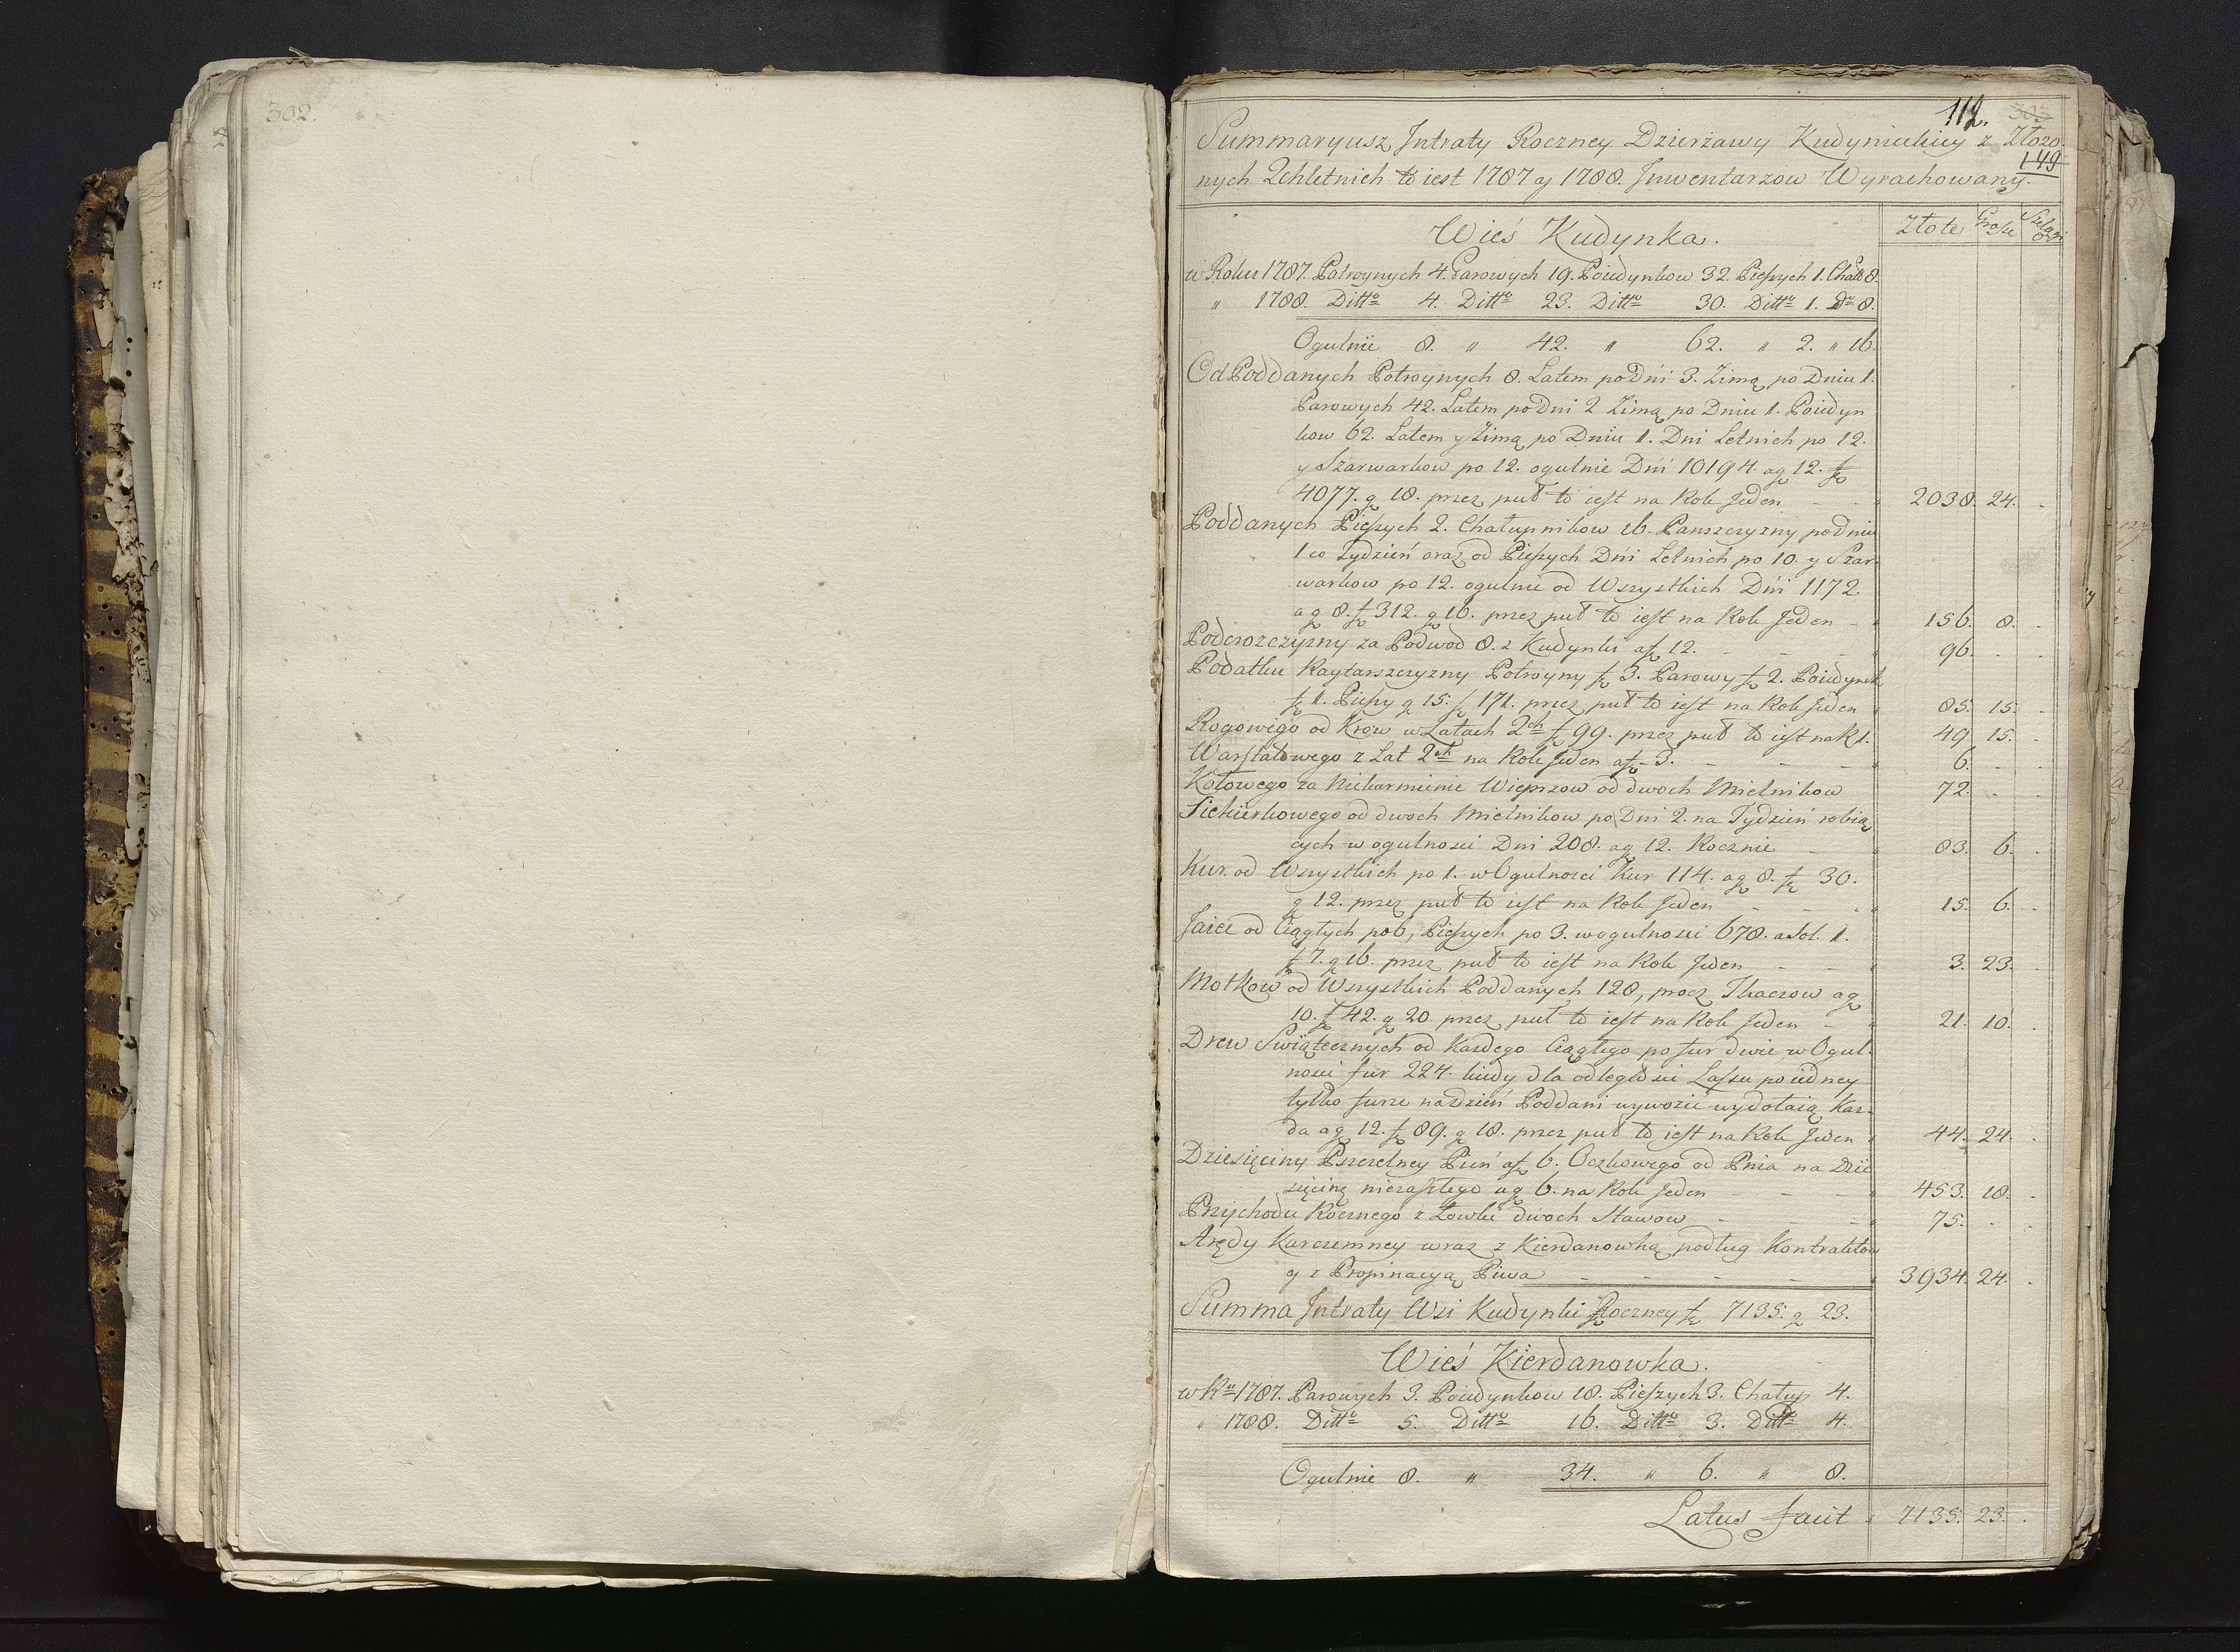 302.
112. 303
Summaryusz Intraty Roczney Dzierżawy Kudynieckiey z Złożo-
149
nych 2chletnich to iest 1787 y 1788. Inwentarzow Wyrachowany.
Wieś Kudynka. Złote Grosze Szelągi
w Roku 1787. Potroynych 4. Parowych 19. Poiedynkow 32. Pieszych 1. Chałº 8.
" 1788. Dittº 4. Dittº 23. Dittº 30. Dittº 1. Dº 8.
Ogulnie 8. " 42. " 62. " 2. " 16.
Od Poddanych Potroynych 8. Latem po Dni 3. Zimą po Dniu 1.
Parowych 42. Latem po Dni 2 Zimą po Dniu 1. Poiedyn
kow 62. Latem y Zimą po Dniu 1. Dni Letnich po 12.
y Szarwarkow po 12. ogulnie Dni 10194. a g 12. f
4077. g 18. przez puł to iest na Rok Jeden - - " 2038. 24. .
Poddanych Pieszych 2. Chałupnikow 16. Panszczyzny po dniu
1 co Tydzień oraz od Pieszych Dni Letnich po 10. y Szar-
warkow po 12. ogulnie od Wszystkich Dni 1172.
a g 8. f 312. g 16. przez puł to iest na Rok Jeden - " 156. 8. .
Podorozczyzny za Podwod 8. z Kudynki a f 12. - - - " 96. . .
Podatku Raytarszczyzny Potroyny f 3. Parowy f 2. Poiedynek
f 1. Pieszy g 15. f 171. przez puł to iest na Rok Jeden " 85. 15. .
Rogowego od Krow w Latach 2ch f 99. przez puł to iest na R 1. 49 15. .
Warsztatowego z Lat 2ch na Rok Jeden a f 3. - - - " 6. . .
Kołowego za Niekarmienie Wieprzow od dwoch Mielnikow 72. . .
Siekierkowego od dwoch Mielnikow po Dni 2. na Tydzień robią
cych w ogulnosci Dni 208. a g 12. Rocznie - " 83. 6. .
Kur. od Wszystkich po 1. w Ogulnosci Kur 114. a g 8. f 30.
g 12. przez puł to iest na Rok Jeden - - " 15. 6. .
Jaiec od Ciągłych po 6, Pieszych po 3. w ogulnosci 678. a Sol. 1.
f 7. g 16. przez puł to iest na Rok Jeden - - " 3. 23. .
Motkow od Wszystkich Poddanych 128, procz Tkaczow a g
10. f 42. g 20. przez puł to iest na Rok Jeden - " 21. 10. .
Drew Swiątecznych od Każdego Ciągłego po fur dwie w Ogul-
nosci fur 224. kiedy dla odległosci Lassu po iedney
tylko furze na dzień Poddani wywozić wydołaią Kaz-
da a g 12. f 89. g 18. przez puł to iest na Rok Jeden " 44. 24. .
Dziesięciny Pszczelney Pień a f 6. Oczkowego od Pnia na Dzie
sięcinę niezaszłego a g 6. na Rok Jeden - - " 453. 18. .
Przychodu Rocznego z Łowki dwoch Stawow - - " 75. . .
Arędy Karczemney wraz z Kierdanowką podług Kontraktow
y z Propinacyą Piwa - - - - " 3934. 24. .
Summa Intraty Wsi Kudynki Roczney f 7135. g 23.
Wieś Kierdanowka.
w Rº 1787. Parowych 3. Poiedynkow 18. Pieszych 3. Chałup 4.
" 1788. Dittº 5. Dittº 16. Dittº 3. Dittº 4.
Ogulnie 8. " 34. " 6. " 8.
Latus facit " 7135. 23. .